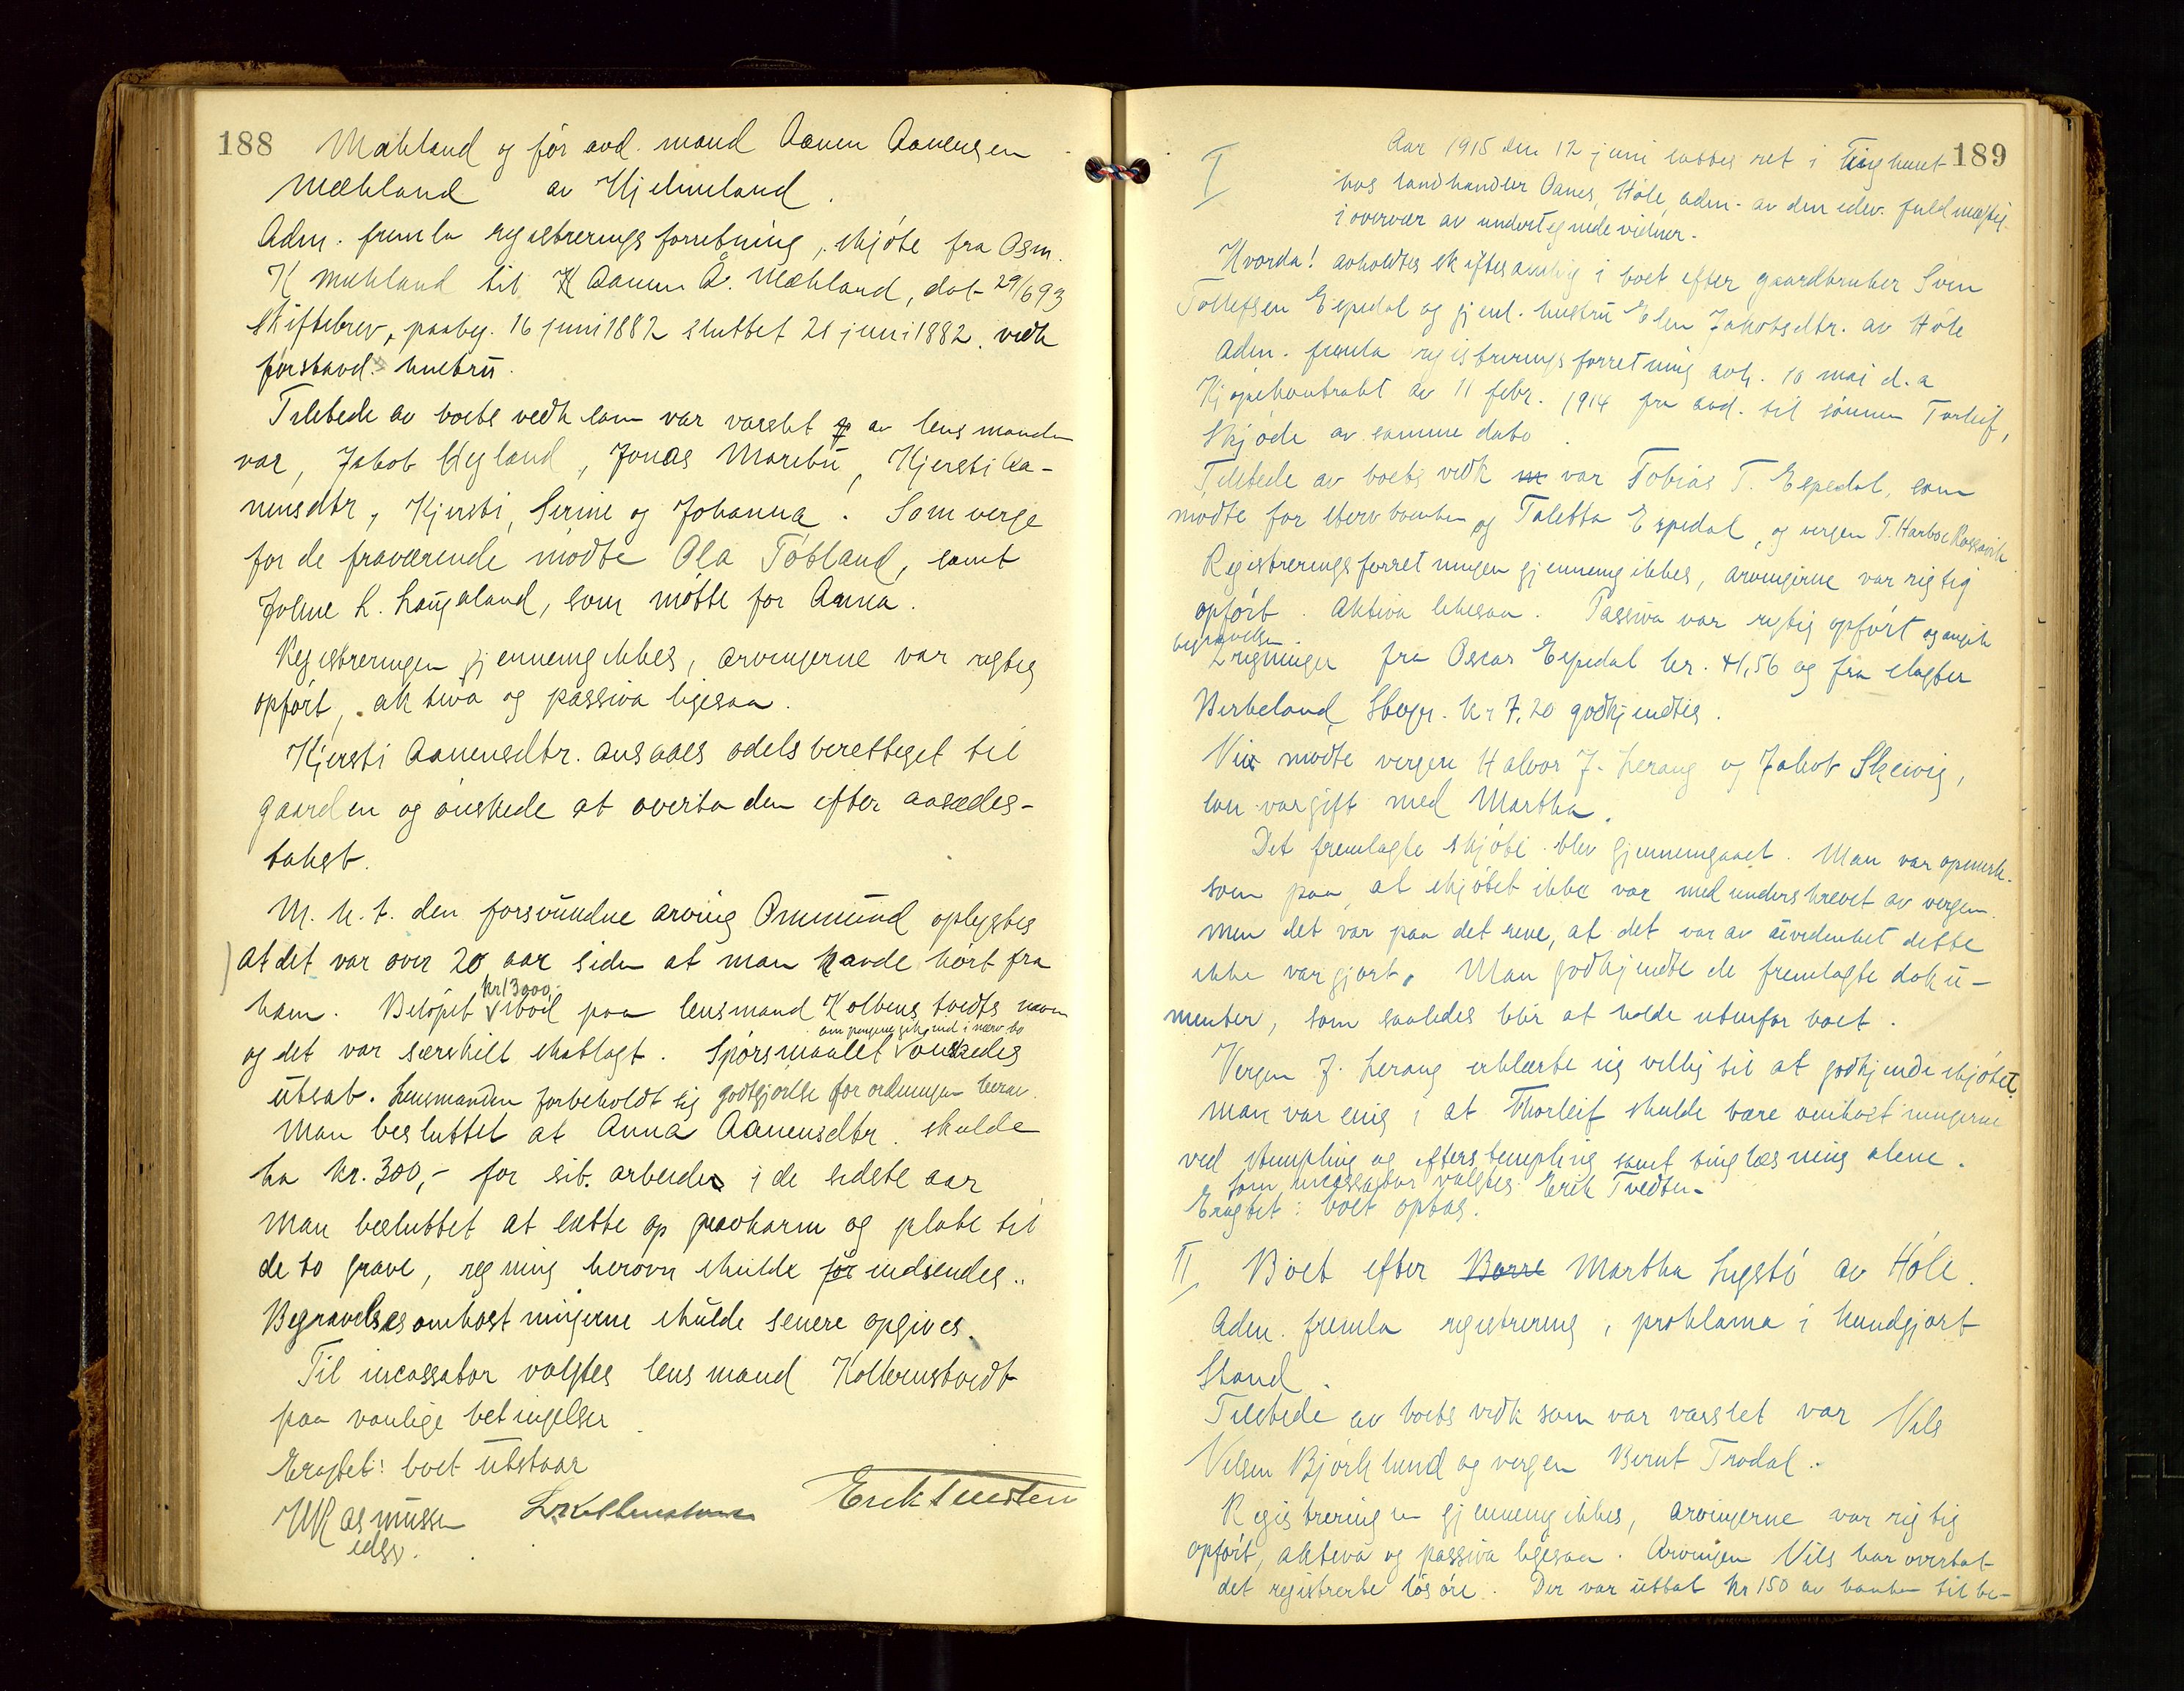 188
Mæhland og før avd. mand Aanen Aanensen
Mæhland av Hjelmeland.
Adm. fremla registreringsforretning, skjöte fra Osm.
K Mæhland til Aanen A. Mæhland, dat 29/6 93
skiftebrev, paabeg. 16 juni 1882 sluttet 21 juni 1882. vedk
førstavd. hustru.
Tilstede av boets vedk som var varslet av lensmanden
var, Jakob Hyland, Jonas Maribu, Kjersti Aa-
nensdtr, Kjersti, Serine og Johanna. Som verge
for de fraværende mødte Ola Tøtland, samt
L. Laugaland, som møtte for Anna.
Registreringen gjennemgikkes, arvingerne var rigtig
opført, aktiva og passiva ligesaa.
Kjersti Aanensdtr. ansaaes odelsberettiget til
gaarden og ønskede at overta den efter aasædes-
takst.
M. h. t. den forsvundne arving Ommund oplystes
at det var over 20 aar siden at man havde hørt fra
ham. Beløpet kr 1300,- stod paa lensmand Kolbenstvedts navn
og det var særskilt skatlagt. Spørsmaalet om pengene gik ind i nærv. bo ønskedes
utsat. Lensmanden forbeholdt sig godtgjørelse for ordningen herav.
Man besluttet at Anna Aanensdtr. skulde
ha kr. 300,- for sit arbeide i de sidste aar
Man besluttet at sætte op gravkarm og plate til
de to grave, regning herover skulde indsendes..
Begravelsesomkostningerne skulde senere opgives.
Til incassator valgtes lensmand Kolbenstvedt
paa vanlige betingelser.
Eragtet: boet utstaar
Rasmussen
edsv.
Erik Tvedten
189
I
Aar 1915 den 12 juni sattes ret i Tinghuset
hos landhandler Oanes, Høle, adm. av den edsv. fuldmægtig
i overvær av undertegnede vidner.
Hvorda! avholdtes skiftesamling i boet efter gaardbruker Sven
Tollefsen Espedal og gjenl. hustru Elen Jakobsdtr. av Høle
Adm. fremla registreringsforretning avh. 10 mai d. a
Kjøpekontrakt av 11 febr. 1914 fra avd. til sønnen Torleif,
Skjøde av samme dato.
Tilstede av boets vedk var Tobias T. Espedal, som
mødte for stervboenken og Taletta Espedal, og vergen T. Harbo Rossavik
Registreringsforretningen gjennemgikkes, arvingerne var rigtig
opført. Aktiva likesaa. Passiva var rigtig opført og angik
begravelsen.
2 regninger fra Oscar Espedal kr. 41,56 og fra slagter
Birkeland, Stvgr. kr 7,20 godkjendtes.
Vider mødte vergen Halvor J. Lerang og Jakob Skeivig,
som var gift med Martha.
Det fremlagte skjøte blev gjennemgaaet. Man var opmerk-
som paa, at skjøtet ikke var medunderskrevet av vergen.
men det var paa det rene, at det var av uvidenhet dette
ikke var gjort. Man godkjendte de fremlagte doku-
menter, som saaledes blir at holde utenfor boet.
Vergen J. Lerang erklærte sig villig til at godkjende skjøtet
man var enig i at Thorleif skulde bære omkostningerne
ved stempling og efterstempling samt tinglæsning alene.
Som incassator valgtes Erik Tvedten.
Eragtet: boet optas.
II Boet efter Martha Lygstø av Høle.
Adm. fremla registrering, proklama i kundgjort
Stand.
Tilstede av boets vedk som var varslet var Nils
Nilsen Bjørklund og vergen Bernt Trodal.
Registreringen gjennemgikkes, arvingerne var rigtig
opført, aktiva og passiva ligesaa. Arvingen Nils har overtat
det registrerte løsøre. Der var uttat kr 150 av banken til be-